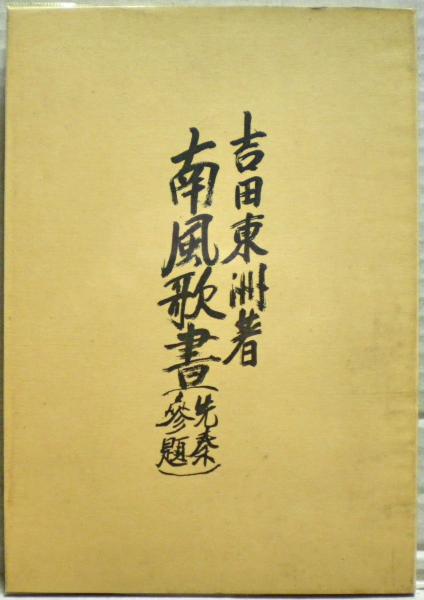 吉田東洲著
南風歌書(先秦
参題)